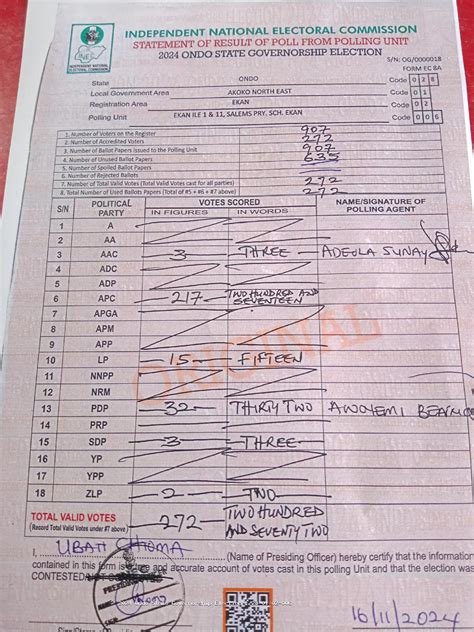 INDEPENDENT NATIONAL ELECTORAL COMMISSION
STATEMENT OF RESULT OF POLL FROM POLLING UNIT
2024 ONDO STATE GOVERNORSHIP ELECTION
INEC
INDEPENDENT NATIONAL
ELECTORAL COMMISSION
S/N: OG/0000018
FORM EC 8A
State ONDO Code 0 2 8
Local Government Area AKOKO NORTH EAST Code 0 1
Registration Area EKAN Code 0 2
Polling Unit EKAN ILE 1 & 11, SALEMS PRY. SCH. EKAN Code 0 0 6
1. Number of Voters on the Register 907
2. Number of Accredited Voters 272
3. Number of Ballot Papers issued to the Polling Unit 907
4. Number of Unused Ballot Papers 635
5. Number of Spoiled Ballot Papers
6. Number of Rejected Ballots
7. Number of Total Valid Votes (Total Valid Votes cast for all parties) 272
8. Total Number of Used Ballot Papers (Total of #5 + #6 + #7 above) 272
S/N POLITICAL PARTY VOTES SCORED NAME/SIGNATURE OF POLLING AGENT
IN FIGURES IN WORDS
1 A
2 AA
3 AAC 3 THREE ADEOLA SUNAY
4 ADC
5 ADP
6 APC 217 TWO HUNDRED AND SEVENTEEN
7 APGA
8 APM
9 APP
10 LP 15 FIFTEEN
11 NNPP
12 NRM
13 PDP 32 THIRTY TWO AWOYEMI
14 PRP
15 SDP 3 THREE
16 YP
17 YPP
18 ZLP 2 TWO
ORIGINAL
TOTAL VALID VOTES 272 TWO HUNDRED AND SEVENTY TWO
(Record Total Valid Votes under #7 above)
I, UBAH (Name of Presiding Officer) hereby certify that the information
contained in this form is a true and accurate account of votes cast in this polling Unit and that the election was
CONTESTED/NOT CONTESTED
16/11/2024